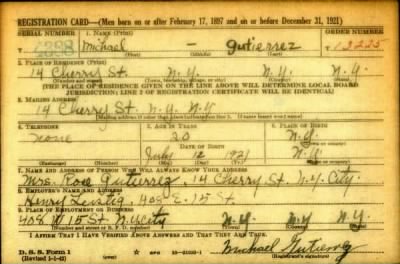 REGISTRATION CARD—(Men born on or after February 17, 1897 and on or before December 31, 1921)
SERIAL NUMBER 1. NAME (Print) ORDER NUMBER
Michael — Gutierrez
(First) (Middle) (Last)
2. PLACE OF RESIDENCE (Print)
14 Cherry St. N.Y. N.Y. N.Y.
(Number and street) (Town, township, village, or city) (County) (State)
[THE PLACE OF RESIDENCE GIVEN ON THE LINE ABOVE WILL DETERMINE LOCAL BOARD
JURISDICTION; LINE 2 OF REGISTRATION CERTIFICATE WILL BE IDENTICAL]
3. MAILING ADDRESS
14 Cherry St. N.Y. N.Y.
[Mailing address if other than place indicated on line 2. If same insert word same]
4. TELEPHONE 5. AGE IN YEARS 6. PLACE OF BIRTH
None 20 N.Y.
DATE OF BIRTH
July 12 1921 N.Y.
(Exchange) (Number) (Mo.) (Day) (Yr.) (State or country)
7. NAME AND ADDRESS OF PERSON WHO WILL ALWAYS KNOW YOUR ADDRESS
Mrs. Rose Gutierrez, 14 Cherry St. N.Y. City
8. EMPLOYER'S NAME AND ADDRESS
Henry 408 E. 15 St.
9. PLACE OF EMPLOYMENT OR BUSINESS
408 15 St. N.Y. City N.Y. N.Y. N.Y.
(Number and street or R. F. D. number) (Town) (County) (State)
I AFFIRM THAT I HAVE VERIFIED ABOVE ANSWERS AND THAT THEY ARE TRUE.
D. S. S. Form 1 Michael Gutierrez
(Revised 1-1-42) (over) 16—21630-1 (Registrant's signature)